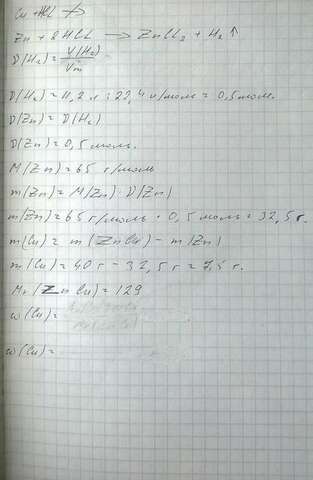 Cu + HCl ⇸
Zn + 2HCl → ZnCl₂ + H₂ ↑
D(H₂) = V(H₂) / Vm
D(H₂) = 11,2 л : 22,4 л/моль = 0,5 моль.
D(Zn) = D(H₂)
D(Zn) = 0,5 моль.
M(Zn) = 65 г/моль
m(Zn) = M(Zn) · D(Zn)
m(Zn) = 65 г/моль · 0,5 моль = 32,5 г.
m(Cu) = m(ZnCu) - m(Zn)
m(Cu) = 40 г - 32,5 г = 7,5 г.
Mr(ZnCu) = 129
w(Cu) =
w(Cu) =